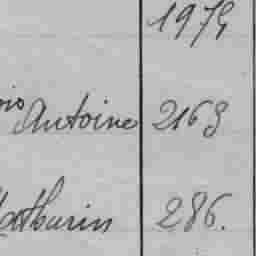 1975
Antoine 2163
Mathurin 286.